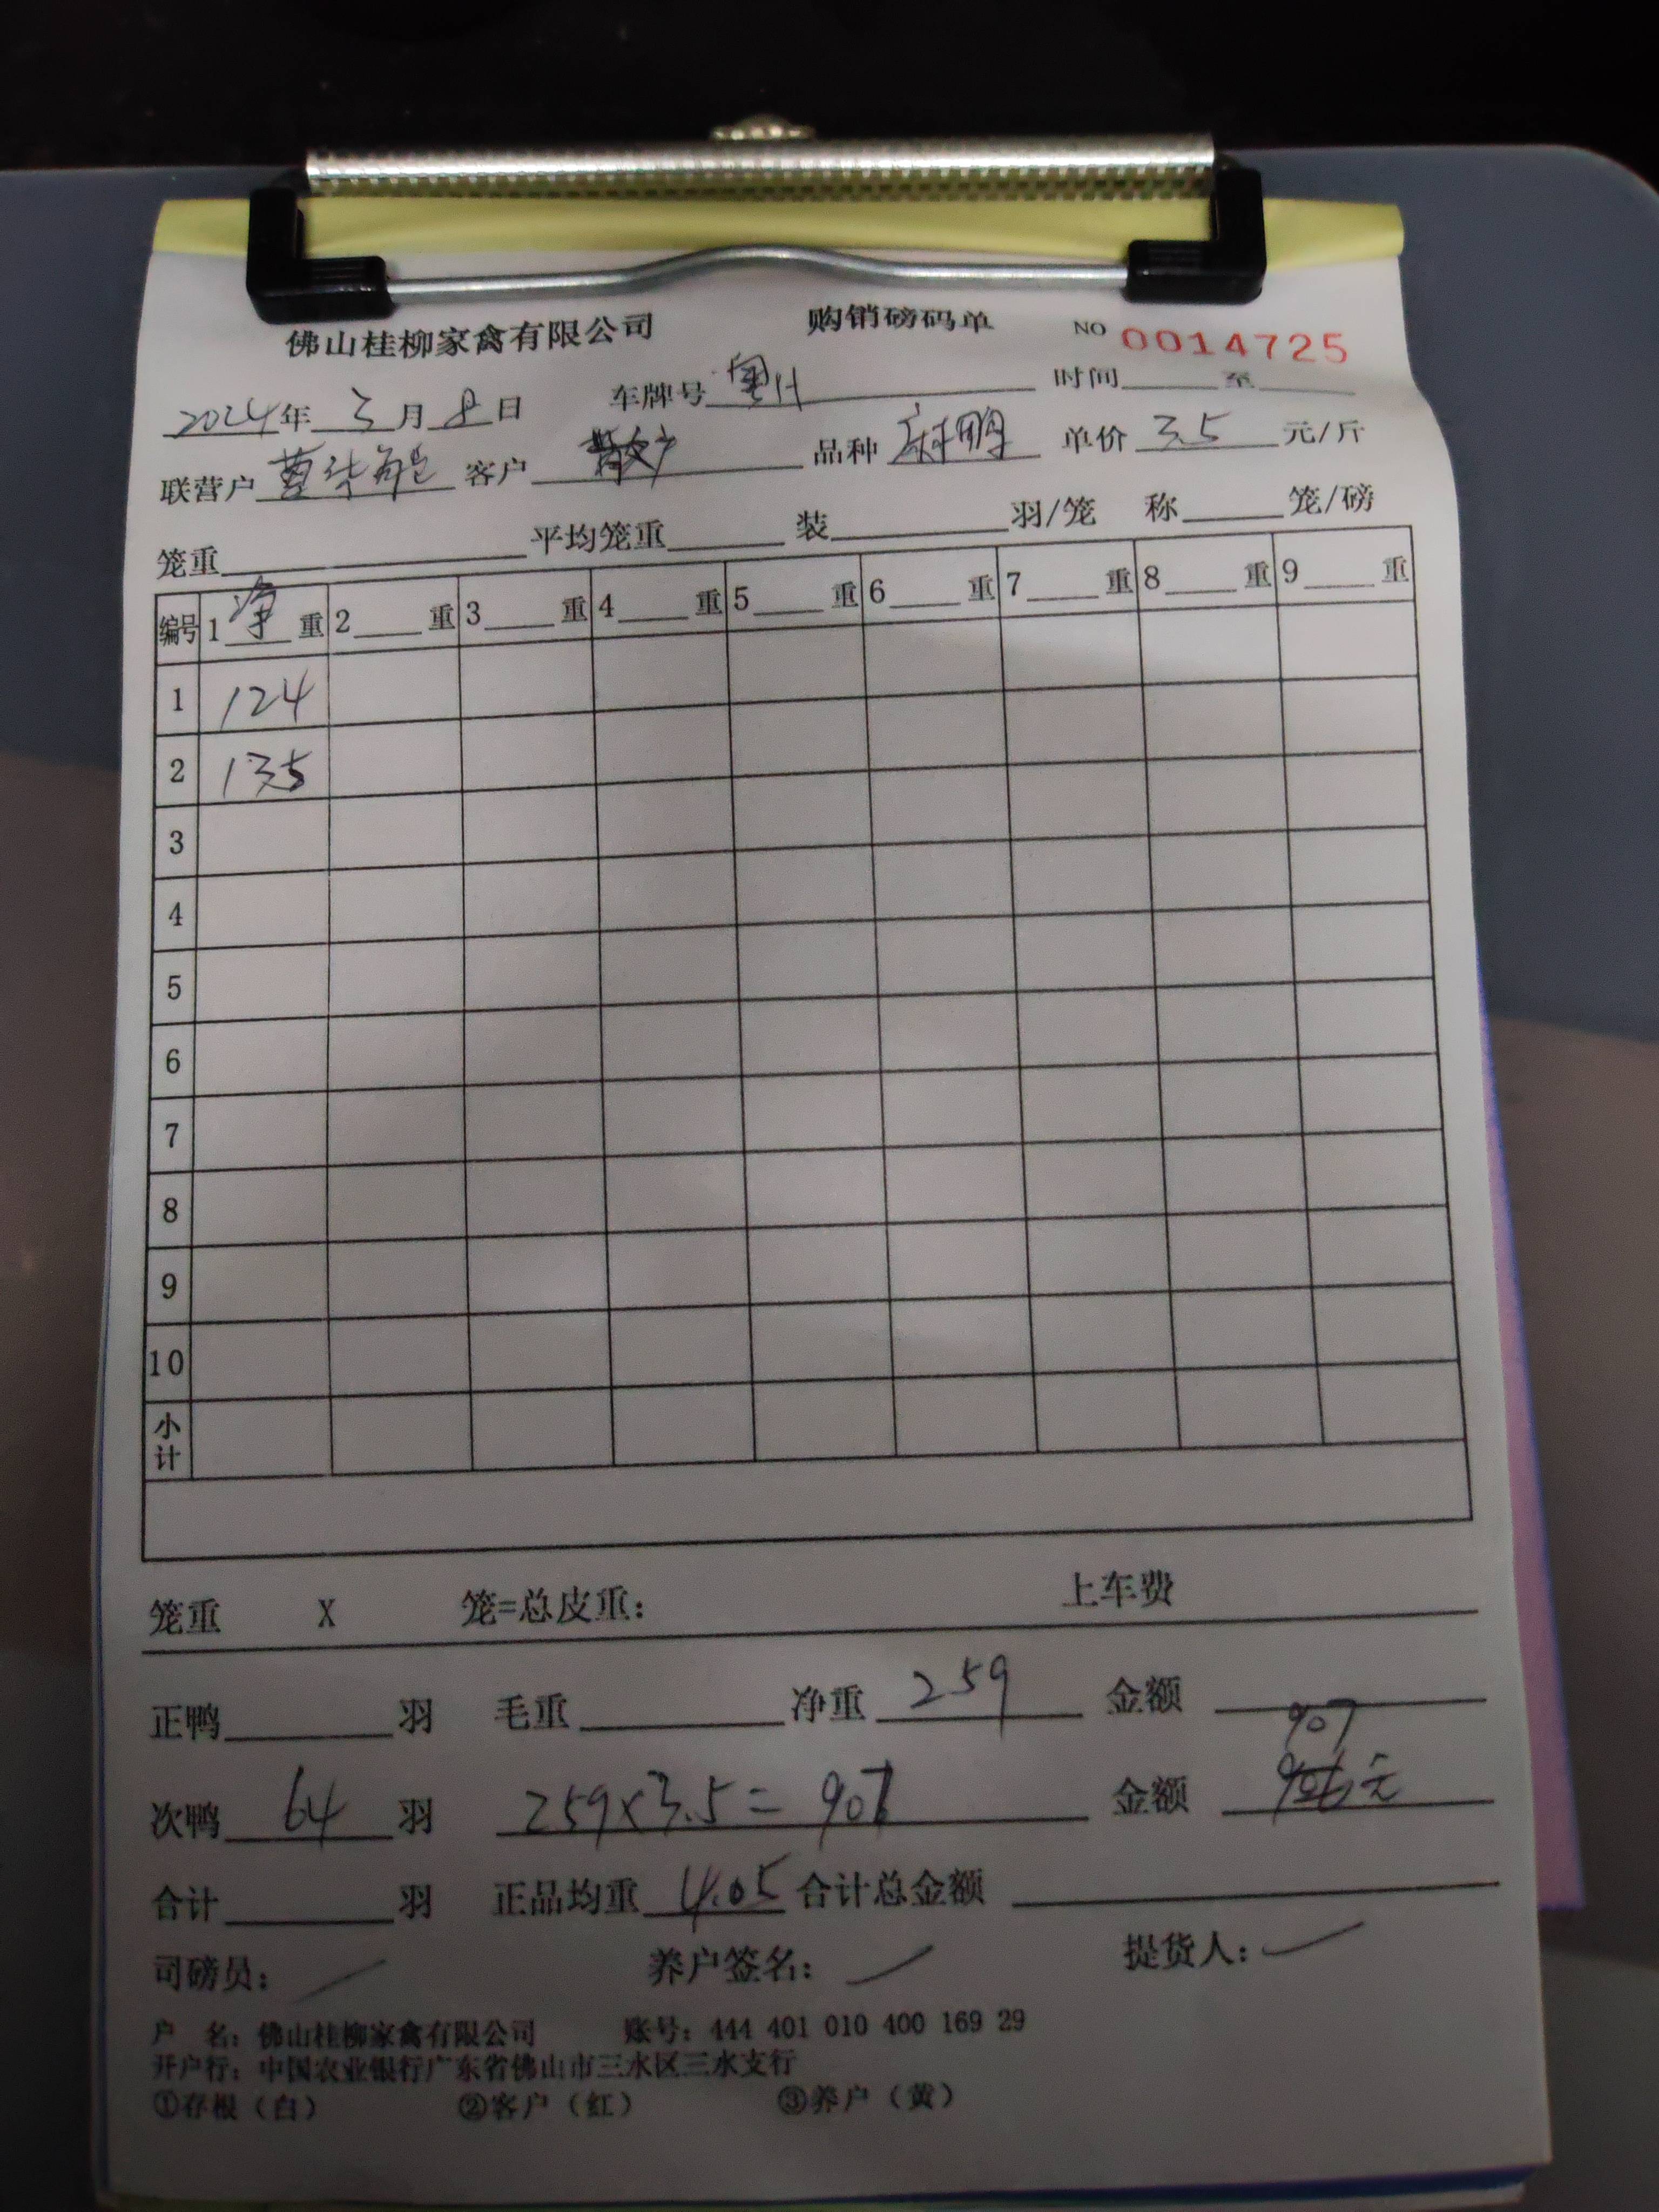 佛山桂柳家禽有限公司 购销磅码单 NO 0014725
2024年 3月 8日 车牌号 粤H 时间 至
联营户 客户 散户 品种 麻鸭 单价 3.5 元/斤
笼重 平均笼重 装 羽/笼 称 笼/磅
编号 1 净 重 2 重 3 重 4 重 5 重 6 重 7 重 8 重 9 重
1 124
2 135
3
4
5
6
7
8
9
10
小计
笼重 X 笼=总皮重: 上车费
正鸭 羽 毛重 净重 259 金额
907
次鸭 64 羽 259×3.5= 907 金额 906元
合计 羽 正品均重 4.05 合计总金额
司磅员: 养户签名: 提货人:
户 名: 佛山桂柳家禽有限公司 账号: 444 401 010 400 169 29
开户行: 中国农业银行广东省佛山市三水区三水支行
①存根（白） ②客户（红） ③养户（黄）